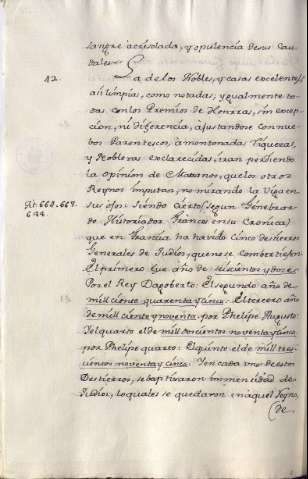 sangre acrisolada, y opulencia de sus Cau-
dales.
12.
La de los Nobles, y casas excelentes,
asi limpias, como notadas, ygualmente to-
cas con los Premios de Honrras, sin excep-
cion, ni diferencia, ajustandose con nue-
bos Parentescos, amontonada Riqueza,
y Noblezas esclarecidas, iran perdiendo
la opinion de Maranos, que los otros
Reynos imputan, no mirando la Viga en
sus ojos. Siendo cierto (segun Genebrar-
do Historiador Frances en su Cronica)
que en Francia ha havido cinco destierros
Generales de Judios, que no se combertieron.
El primero que año de seiscientos y doze
Por el Rey Dagoberto. El segundo año de
mill ciento quarenta y cinco. El tercero año
de mill ciento y noventa, por Phelipe Augusto.
Y el quarto el de mill trescientos noventa y cinco
por Phelipe quarto. El quinto el de mill tres-
cientos noventa y cinco. Y en cada uno de estos
Destierros, se baptizaron inmencidad de
Judios, los quales se quedaron en aquel Reyno,
(de